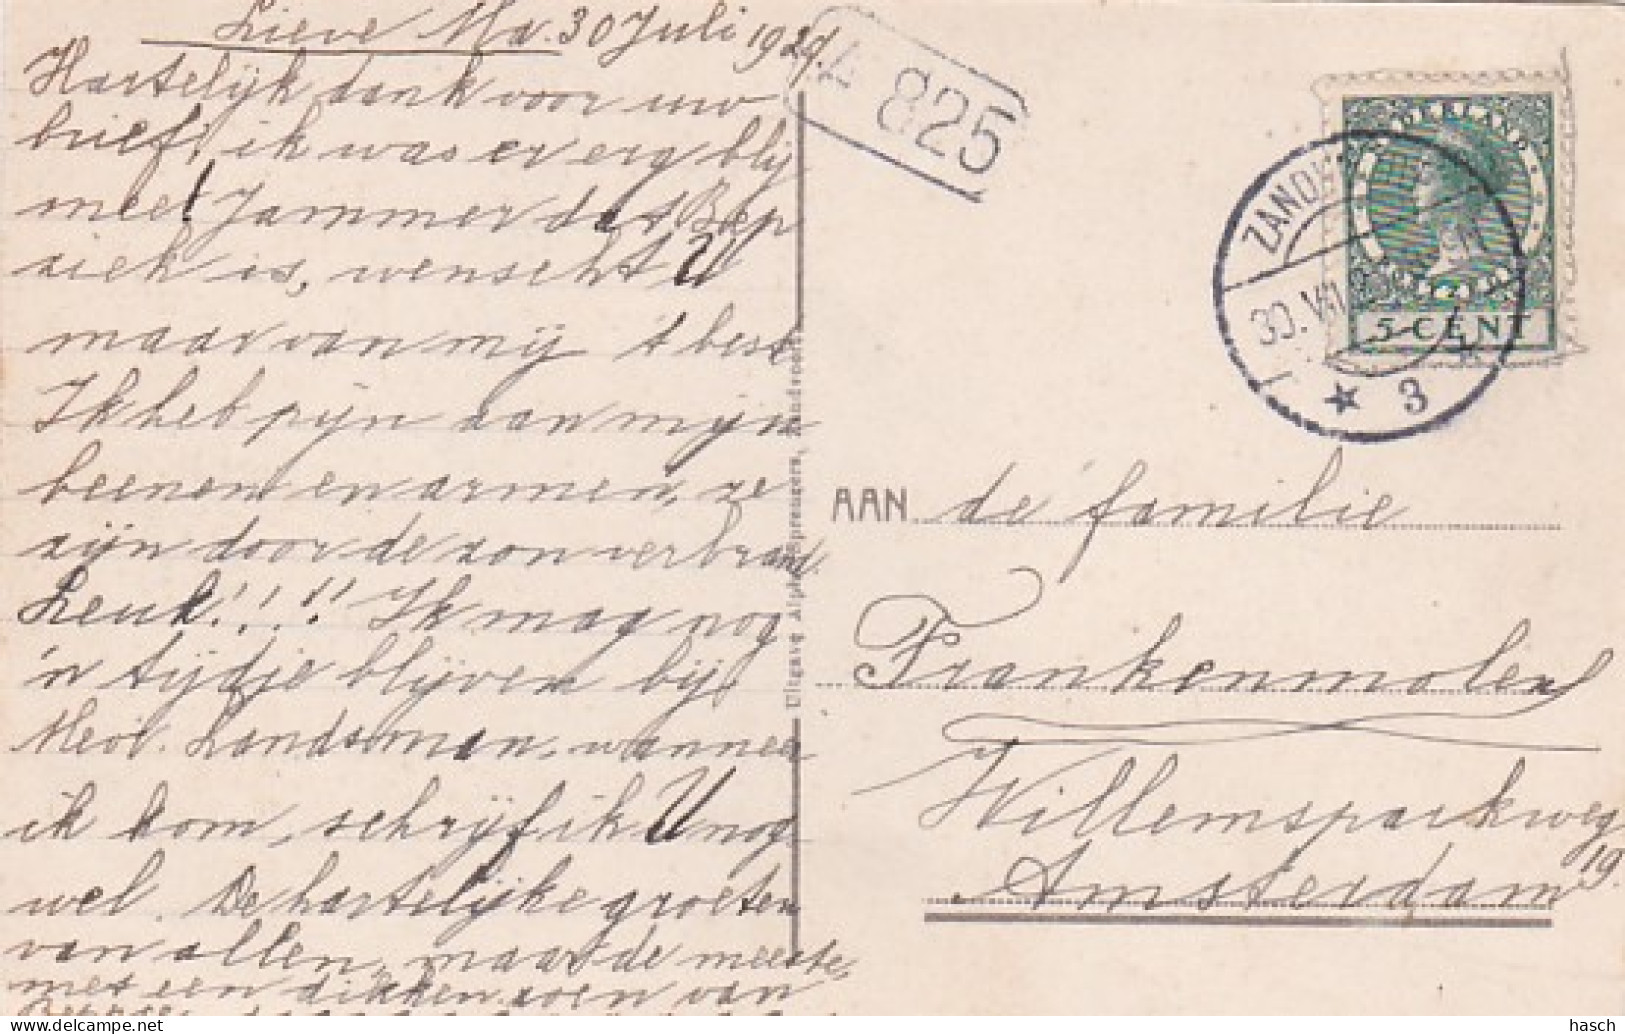 Lieve Ma. 30 Juli 1929.
Hartelijk dank voor uw
brief, ik was er erg blij
mee! Jammer dat Bep
ziek is, wenscht U
maar van mij 't best
Ik heb pijn aan mijn
beenen en armen, ze
zijn door de zon verbrand.
Leuk!!!! Ik mag nog
'n tijdje blijven bij
Mevr. Landsman, wanneer
ik kom, schrijf ik U nog
wel. De hartelijke groeten
van allen, maar de meeste,
met een dikken zoen van
A 825
NEDERLAND
5 CENT
ZANDVOORT
30.VII
3
Uitgave Alph. Spreeugers, Zandvoort
AAN de familie
Frankenmolen
Willemsparkweg
19.
Amsterdam
hasch